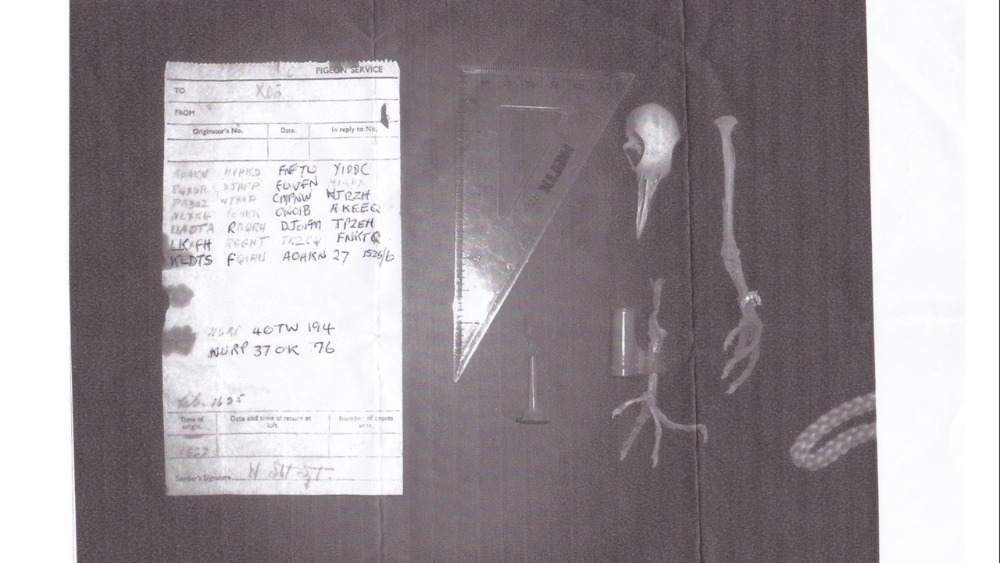 PIGEON SERVICE
TO XO2
FROM
Originator's No. Date. In reply to No.
AOAKN HVPKD FNFJW YIDDC
DJHFP
PABUZ WYYNP CMPNW HJRZH
NLXKG ONOIB AKEEQ
RBQRH DJOFM TPZEH
LKXGH RGGHT JRZCQ FNKTQ
KLDTS FQIRW AOAKN 27 1525/6
NURP 40TW 194
NURP 37 OK 76
lib. 1625
Time of origin. Date and time of return at loft. Number of copies sent.
1522
Sender's Signature W Stot Sjt.